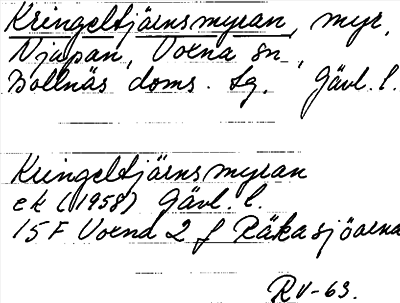 Kringeltjärnsmyran, myr,
Njupan, Voxna sn,
Bollnäs doms. lg, Gävl. l.
Kringeltjärnsmyran
ek (1958) Gävl. l.
15F Voxna 2 f Räkasjöarna
RV-63.